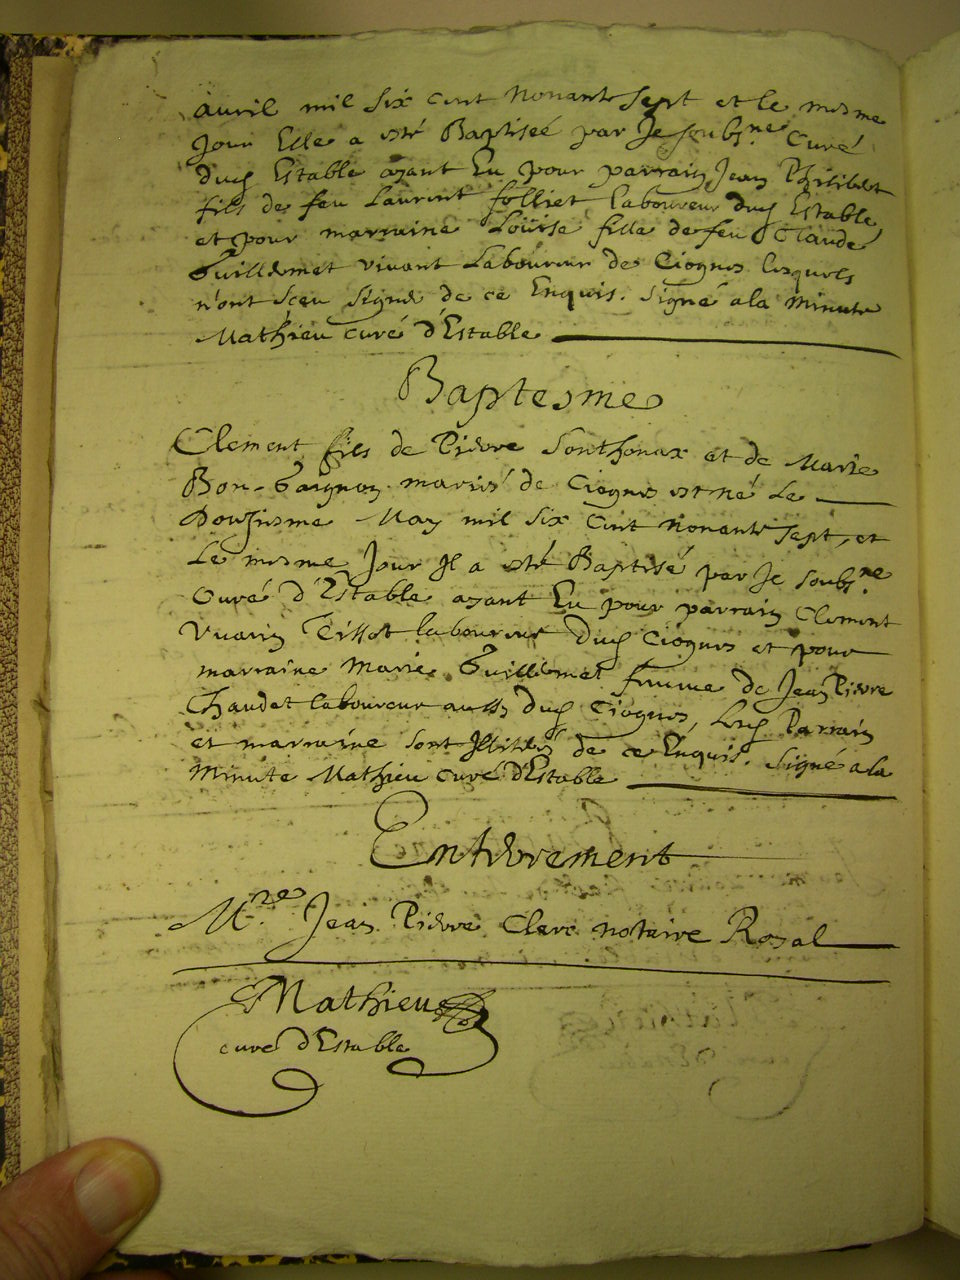 auril mil six cent nonante sept et le mesme
jour Elle a esté Baptiseé par Je soubs.ne Curé
dud Estable ayant Eu pour parrain Jean Philibert
fils de feu Laurent folliet laboureur dud Estable
et pour marraine Loüise fille de feu Claude
Guillermet viuant Laboureur de Ciognes lesquels
n'ont sceu signer de ce Enquis. signé a la minute
Mathieu curé d'Estable
Baptesme
Clement fils de Pierre Sonthonax et de Marie
Bon-Gaignon mariés de Ciognes est né Le
Douziesme May mil six cent nonante sept, et
Le mesme Jour Il a esté Baptisé par Je soubs.ne
Curé d'Estable ayant Eu pour parrain Clement
Vuarin Tissot laboureur dud Ciognes et pour
marraine Marie Guillermet femme de Jean Pierre
Chaudet laboureur aussy dud Ciognes, Lesd Parrain
et marraine sont Illitérés de ce Enquis. signé a la
minute Mathieu curé d'Estable
Enterrement
M.re Jean Pierre Clerc notaire Royal
Mathieu
curé d'Estable